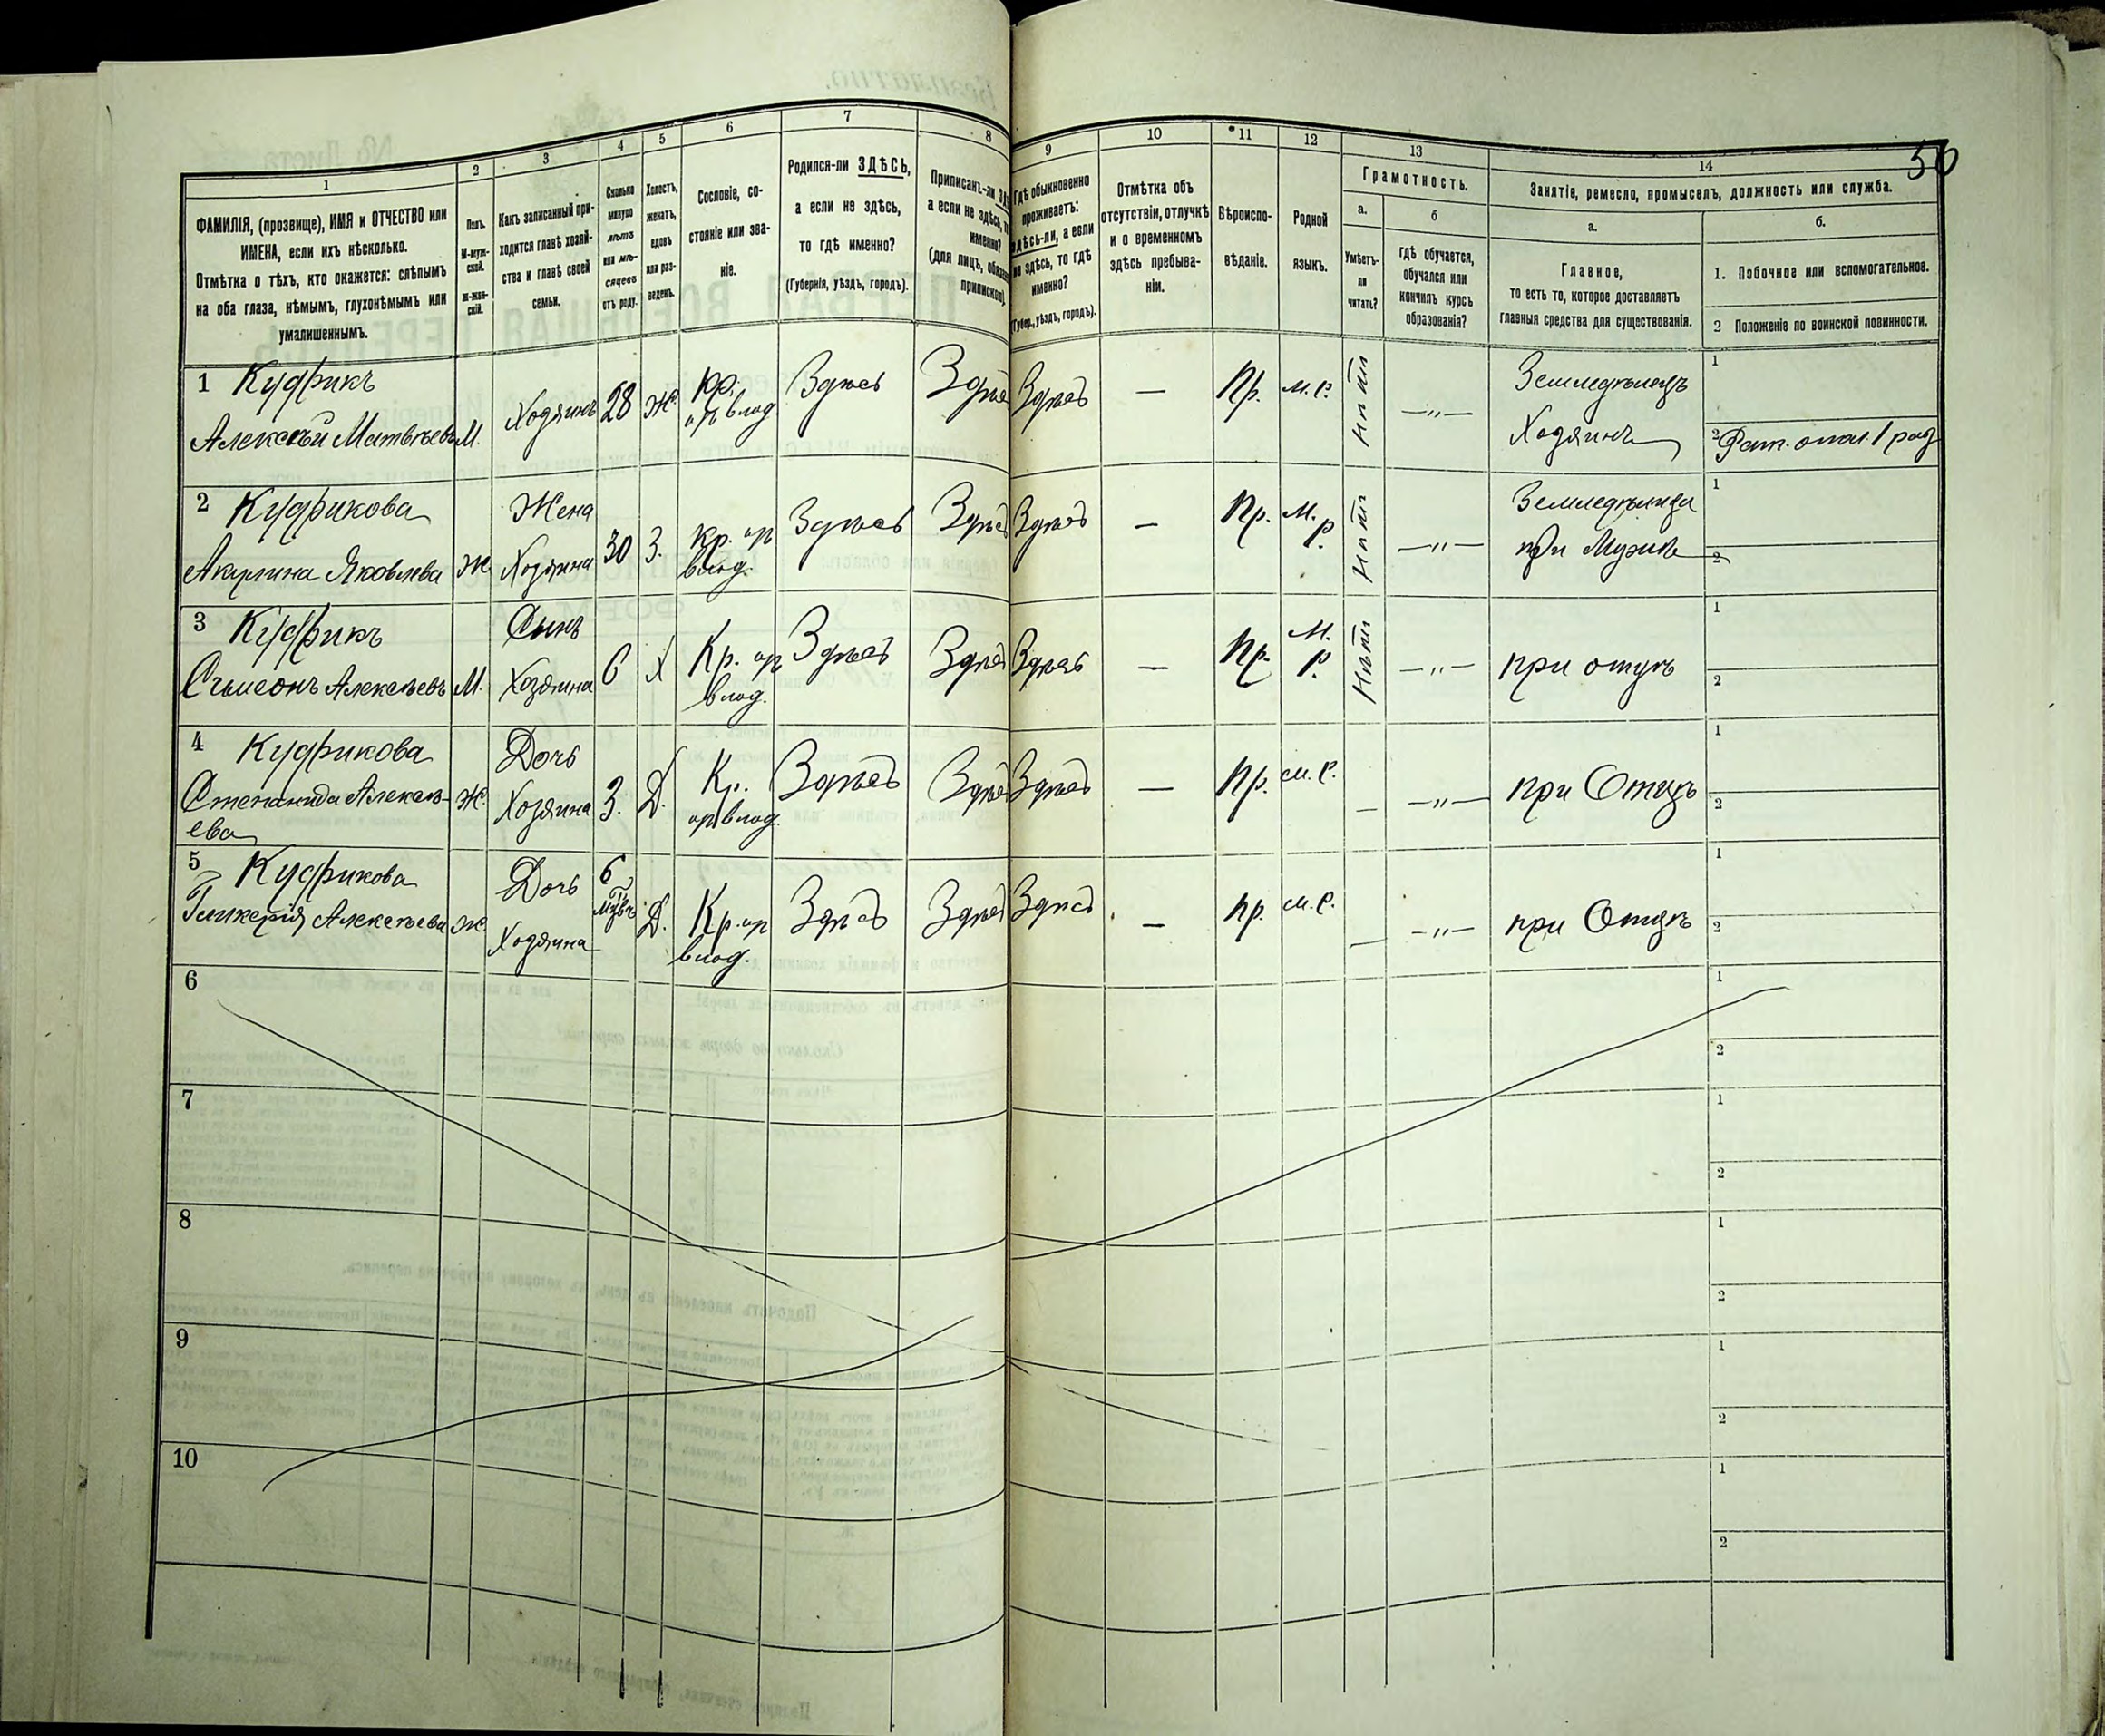 56
1
2
3
4
5
6
7
8
9
10
11
12
13
14
ФАМИЛІЯ, (прозвище), ИМЯ и ОТЧЕСТВО или
ИМЕНА, если ихъ нѣсколько.
Отмѣтка о тѣхъ, кто окажется: слѣпымъ
на оба глаза, нѣмымъ, глухонѣмымъ или
умалишеннымъ.
Полъ.
М-муж-
ской.
Ж-жен-
скій.
Какъ записанный при-
ходится главѣ хозяй-
ства и главѣ своей
семьи.
Сколько
минуло
лѣтъ
или мѣ-
сяцевъ
отъ роду.
Холостъ,
женатъ,
вдовъ
или раз-
веденъ.
Сословіе, со-
стояніе или зва-
ніе.
Родился-ли ЗДѢСЬ,
а если не здѣсь,
то гдѣ именно?
(Губернія, уѣздъ, городъ).
Приписанъ-ли
а если не здѣсь,
именно?
(для лицъ,
припискою)
Гдѣ обыкновенно
проживаетъ:
здѣсь-ли, а если
не здѣсь, то гдѣ
именно?
(Губер., уѣздъ, городъ).
Отмѣтка объ
отсутствіи, отлучкѣ
и о временномъ
здѣсь пребыва-
ніи.
Вѣроиспо-
вѣданіе.
Родной
языкъ.
Грамотность.
а.
Умѣетъ-
ли
читать?
б
гдѣ обучается,
обучался или
кончилъ курсъ
образованія?
Занятіе, ремесло, промыселъ, должность или служба.
а.
Главное,
то есть то, которое доставляетъ
главныя средства для существованія.
б.
1. Побочное или вспомогательное.
2 Положеніе по воинской повинности.
1 Кудрикъ
Алексѣй Матвѣевъ М. Хозяинъ 28 Ж. кр. Здѣсь Здѣсь Здѣсь — Пр. м. р. Нѣтъ —„— Земледѣлецъ
Хозяинъ
1
2 Рат. опол. 1 раз
2 Кудрикова Жена
Акулина Яковлева Ж Хозяина 30 З. Кр. Здѣсь Здѣсь Здѣсь — Пр. м. р. Нѣтъ —„— Земледѣлица
при Мужѣ
1
2
3 Кудрикъ Сынъ
Сѵмеонъ Алексѣевъ М. Хозяина 6 Х Кр. Здѣсь Здѣсь Здѣсь — Пр. М. Р. Нѣтъ —„— при отцѣ
1
2
4 Кудрикова Дочь
Степанида Алексѣ-
ева Ж. Хозяина 3. Д. Кр. Здѣсь Здѣсь Здѣсь — Пр. м. р. — —„— при Отцѣ
1
2
5 Кудрикова Дочь 6
Гликерія Алексѣева Ж. Хозяина Д. Кр. Здѣсь Здѣсь Здѣсь — пр. м. р. — —„— при Отцѣ
1
2
6
1
2
7
1
2
8
1
2
9
1
2
10
1
2